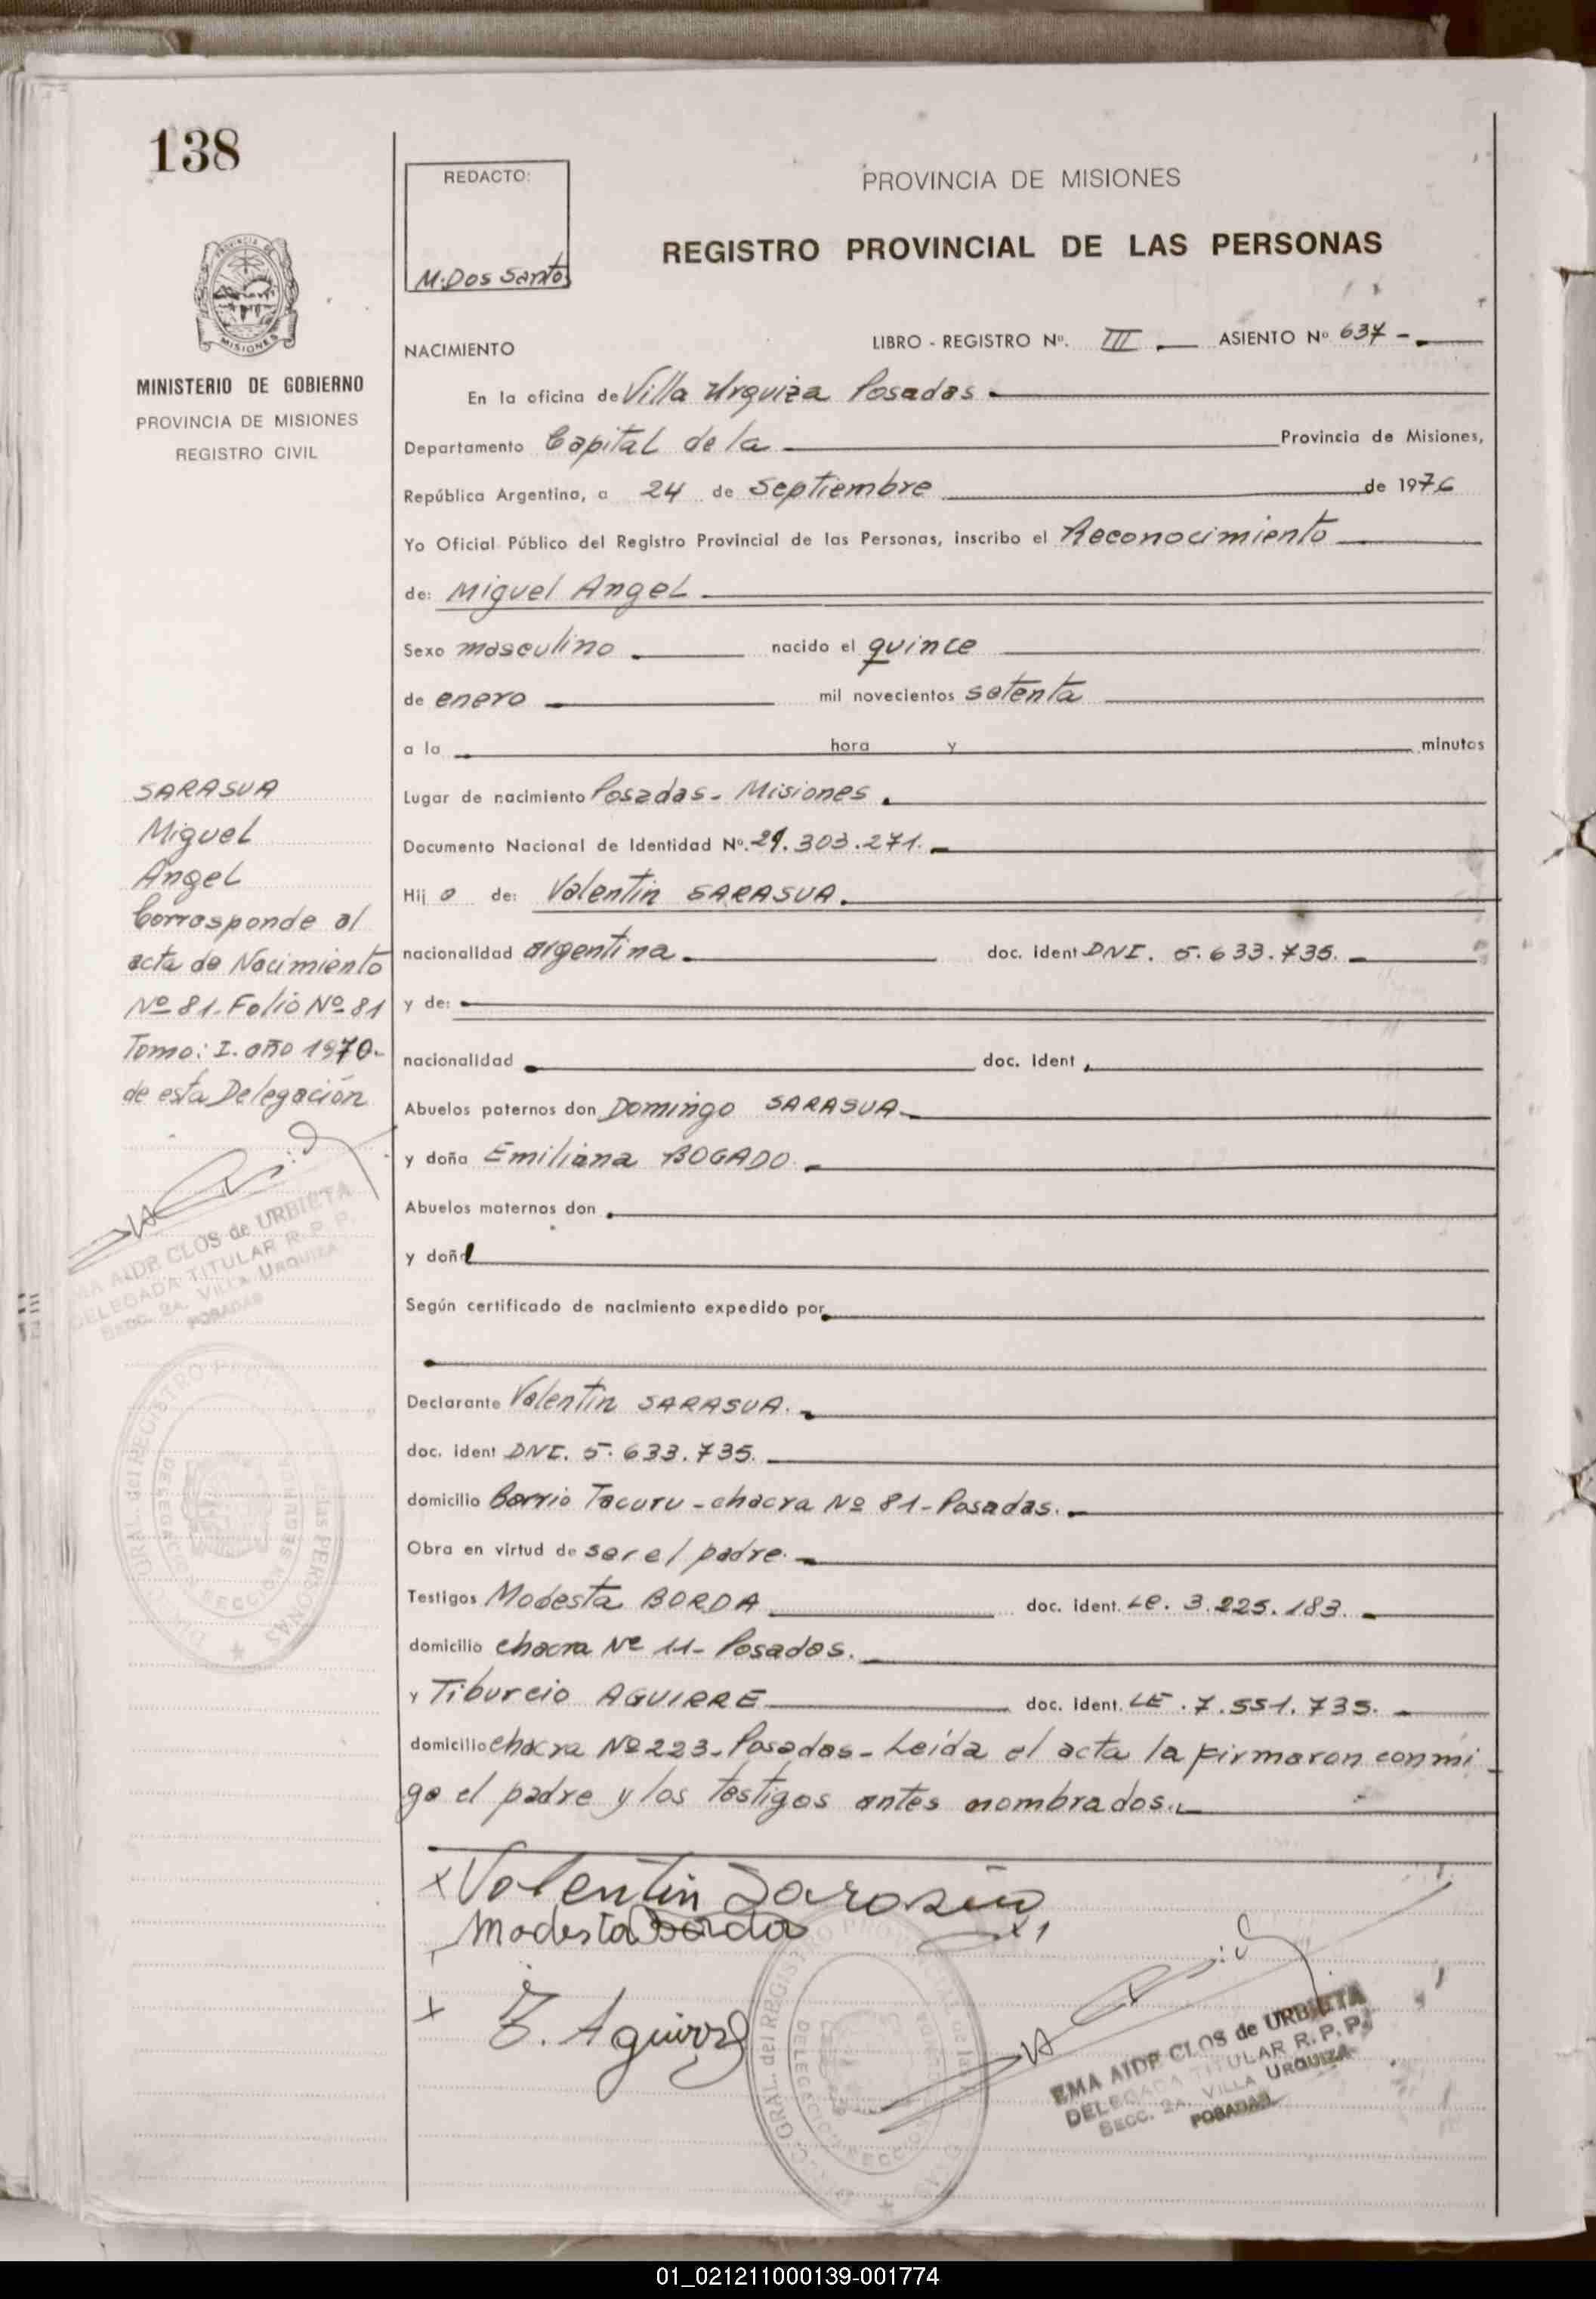 138
REDACTO:
M. Dos Santos
PROVINCIA DE MISIONES
REGISTRO PROVINCIAL DE LAS PERSONAS
PROVINCIA DE
MISIONES
MINISTERIO DE GOBIERNO
PROVINCIA DE MISIONES
REGISTRO CIVIL
NACIMIENTO LIBRO - REGISTRO Nº. III ASIENTO Nº 637 -
En la oficina de Villa Urquiza Posadas
Departamento Capital de la Provincia de Misiones,
República Argentina, a 24 de Septiembre de 1976
Yo Oficial Público del Registro Provincial de las Personas, inscribo el Reconocimiento
de: Miguel Angel
Sexo masculino nacido el quince
de enero mil novecientos setenta
a la hora y minutos
Lugar de nacimiento Posadas - Misiones
Documento Nacional de Identidad Nº. 303.271.
Hij o de: Valentin SARASUA.
nacionalidad argentina doc. ident DNI. 5.633.735.
y de:
nacionalidad doc. ident
Abuelos paternos don Domingo SARASUA
y doña Emiliana BOGADO.
Abuelos maternos don
y doña
Según certificado de nacimiento expedido por
Declarante Valentin SARASUA.
doc. ident DNI. 5.633.735.
domicilio Barrio Tacuru - chacra Nº 81 - Posadas.
Obra en virtud de ser el padre.
Testigos Modesta BORDA doc. ident. LE. 3.225.183.
domicilio chacra Nº 11 - Posadas.
y Tiburcio AGUIRRE doc. ident. LE. 7.551.735.
domicilio chacra Nº 223 - Posadas - Leída el acta la firmaron conmi
go el padre y los testigos antes nombrados.
SARASUA
Miguel
Angel
Corresponde al
acta de Nacimiento
Nº 81 - Folio Nº 81
Tomo: I. año 1970 -
de esta Delegación
EMA AIDE CLOS de URBIETA
DELEGADA TITULAR R. P. P.
SECC. 2A. VILLA URQUIZA
POSADAS
x Valentin Sarasua
Modesta Borda
x T. Aguirre
EMA AIDE CLOS de URBIETA
DELEGADA TITULAR R. P. P.
SECC. 2A. VILLA URQUIZA
POSADAS
01_021211000139-001774